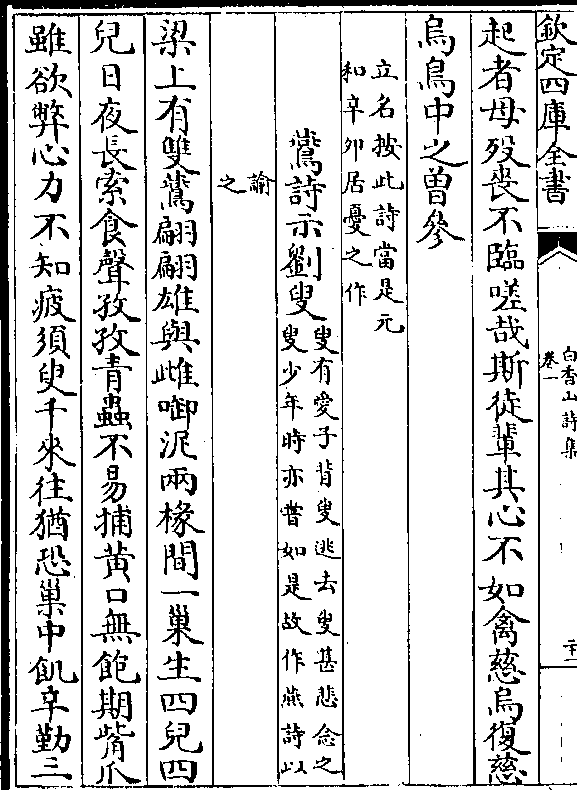 欽定四庫全書
白香山詩集
卷一
二十二
起者母歿喪不臨嗟哉斯徒輩其心不如禽慈烏復慈
烏鳥中之曾參
立名按此詩當是元
和辛卯居憂之作
鷰詩示劉叟
叟有愛子背叟逃去叟甚悲念之
叟少年時亦嘗如是故作燕詩以
諭
之
梁上有雙鷰翩翩雄與雌啣泥兩椽間一巢生四兒四
兒日夜長索食聲孜孜青蟲不易捕黄口無飽期觜爪
雖欲弊心力不知疲須臾千來往猶恐巢中飢辛勤三